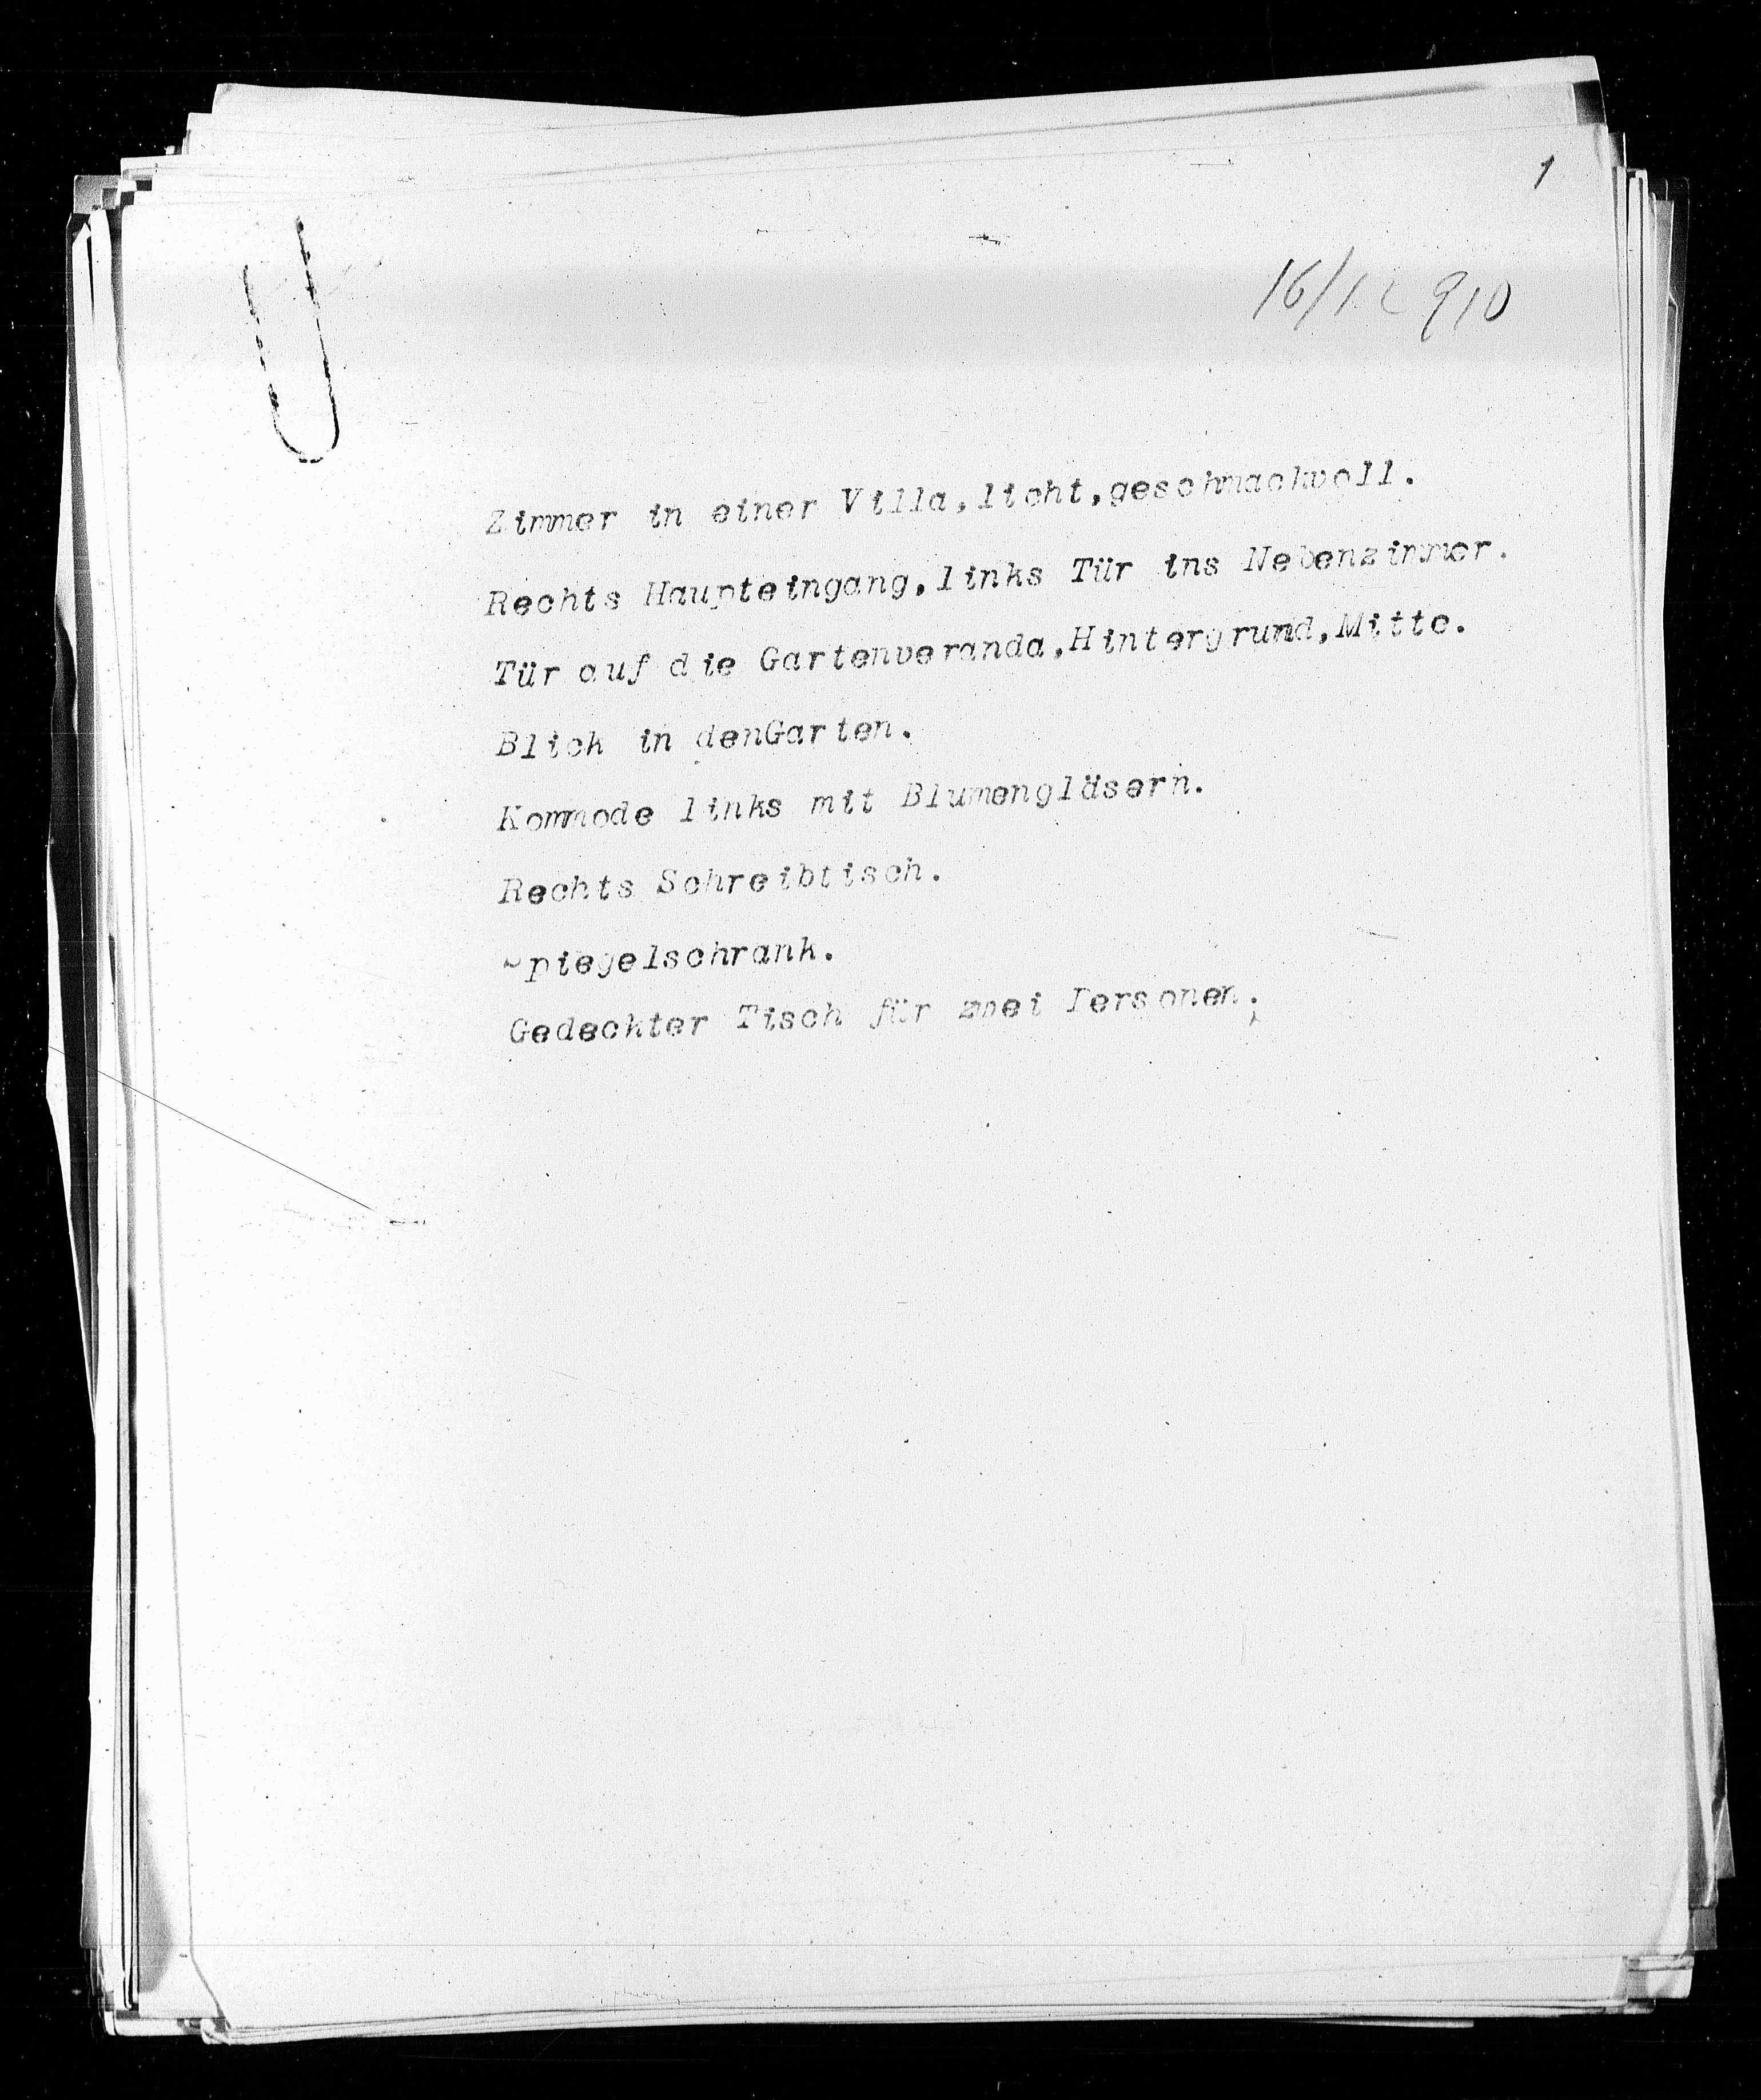 1
16/12 910
Zimmer in einer Villa,licht,geschmackvoll.
Rechts Haupteingang,links Tür ins Nebenzimmer.
Tür auf die Gartenveranda,Hintergrund,Mitte.
Blick in denGarten.
Kommode links mit Blumengläsern.
Rechts Schreibtisch.
Spiegelschrank.
Gedeckter Tisch für zwei Personen.